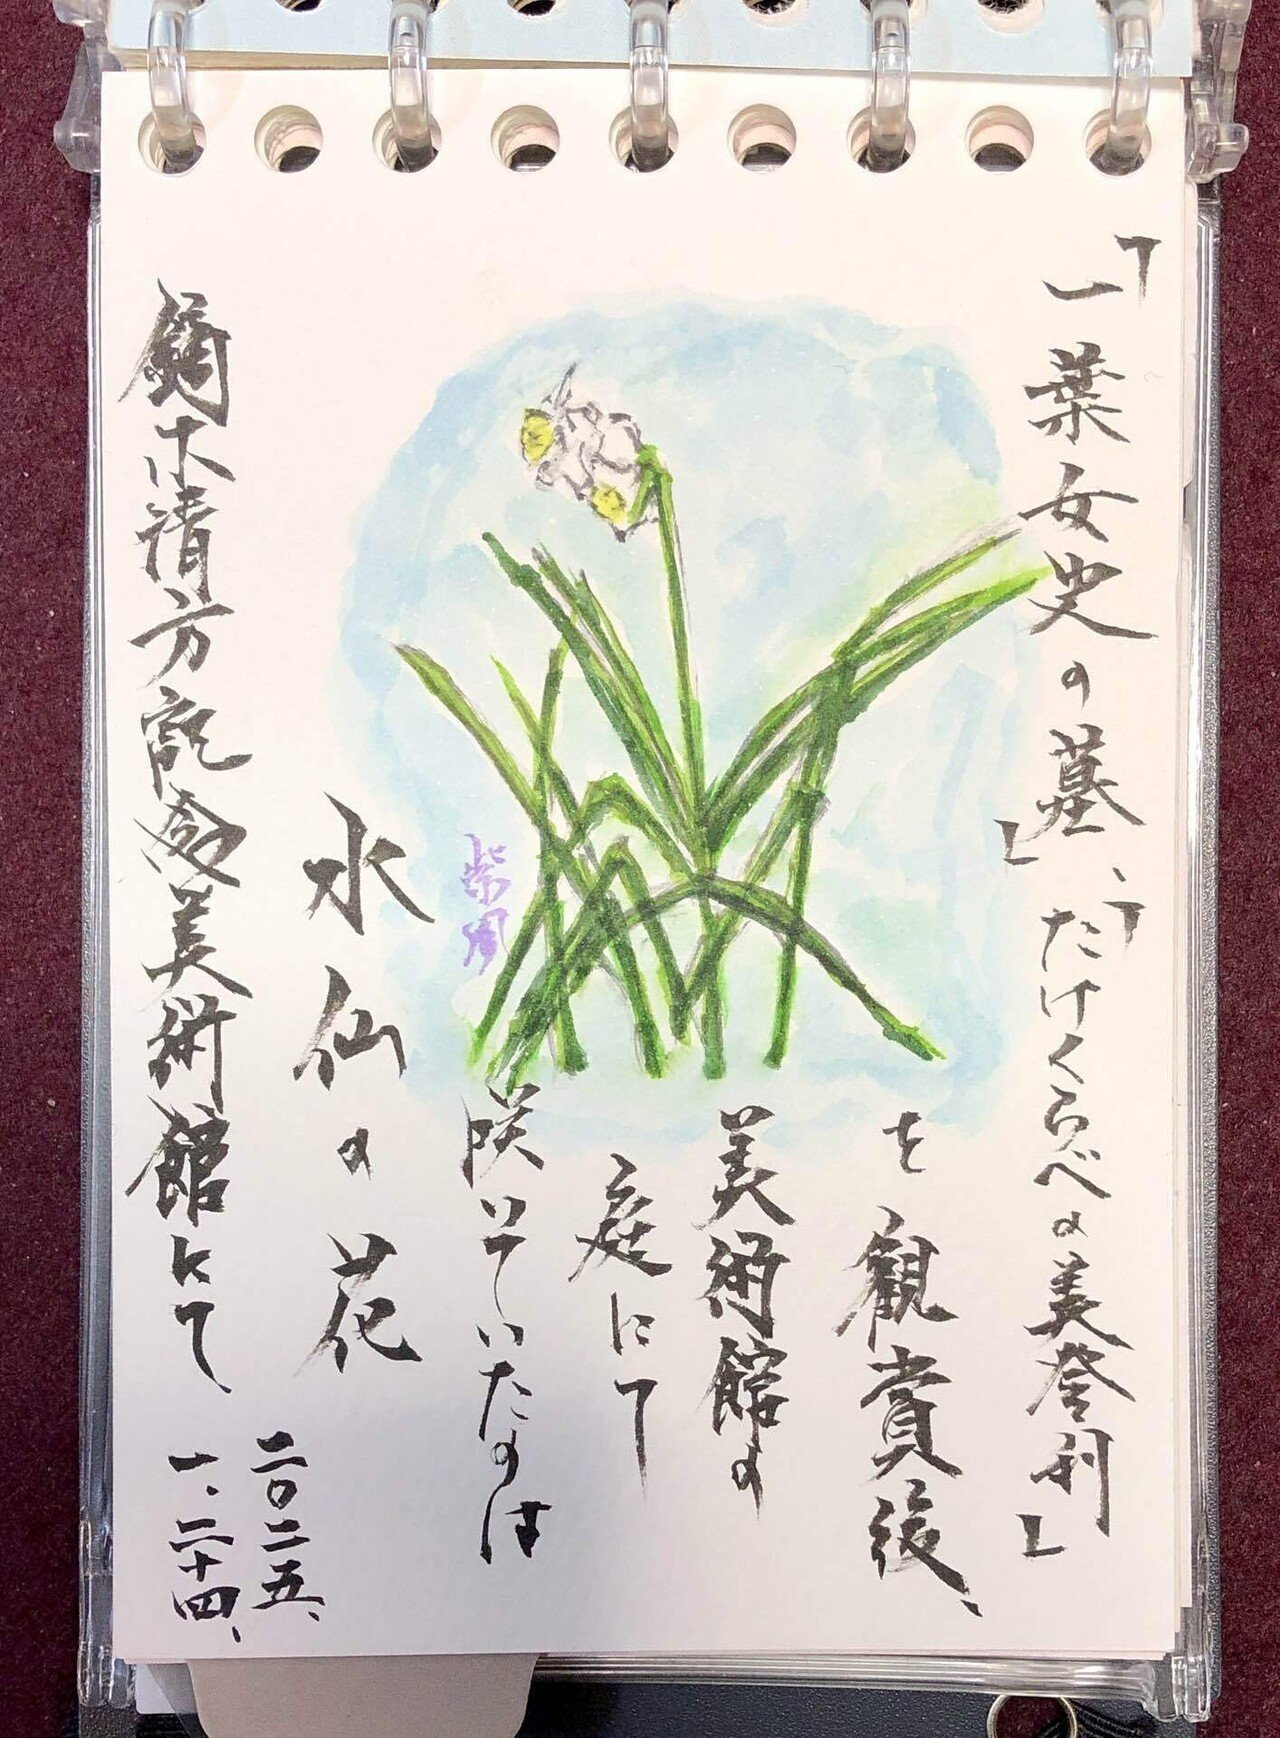 「一葉女史の墓」、「たけくらべの美登利」
を観賞後、
美術館の
庭にて
咲いていたのは
水仙の花
鏑木清方記念美術館にて、
二〇二五、
一、二十四、
紫風